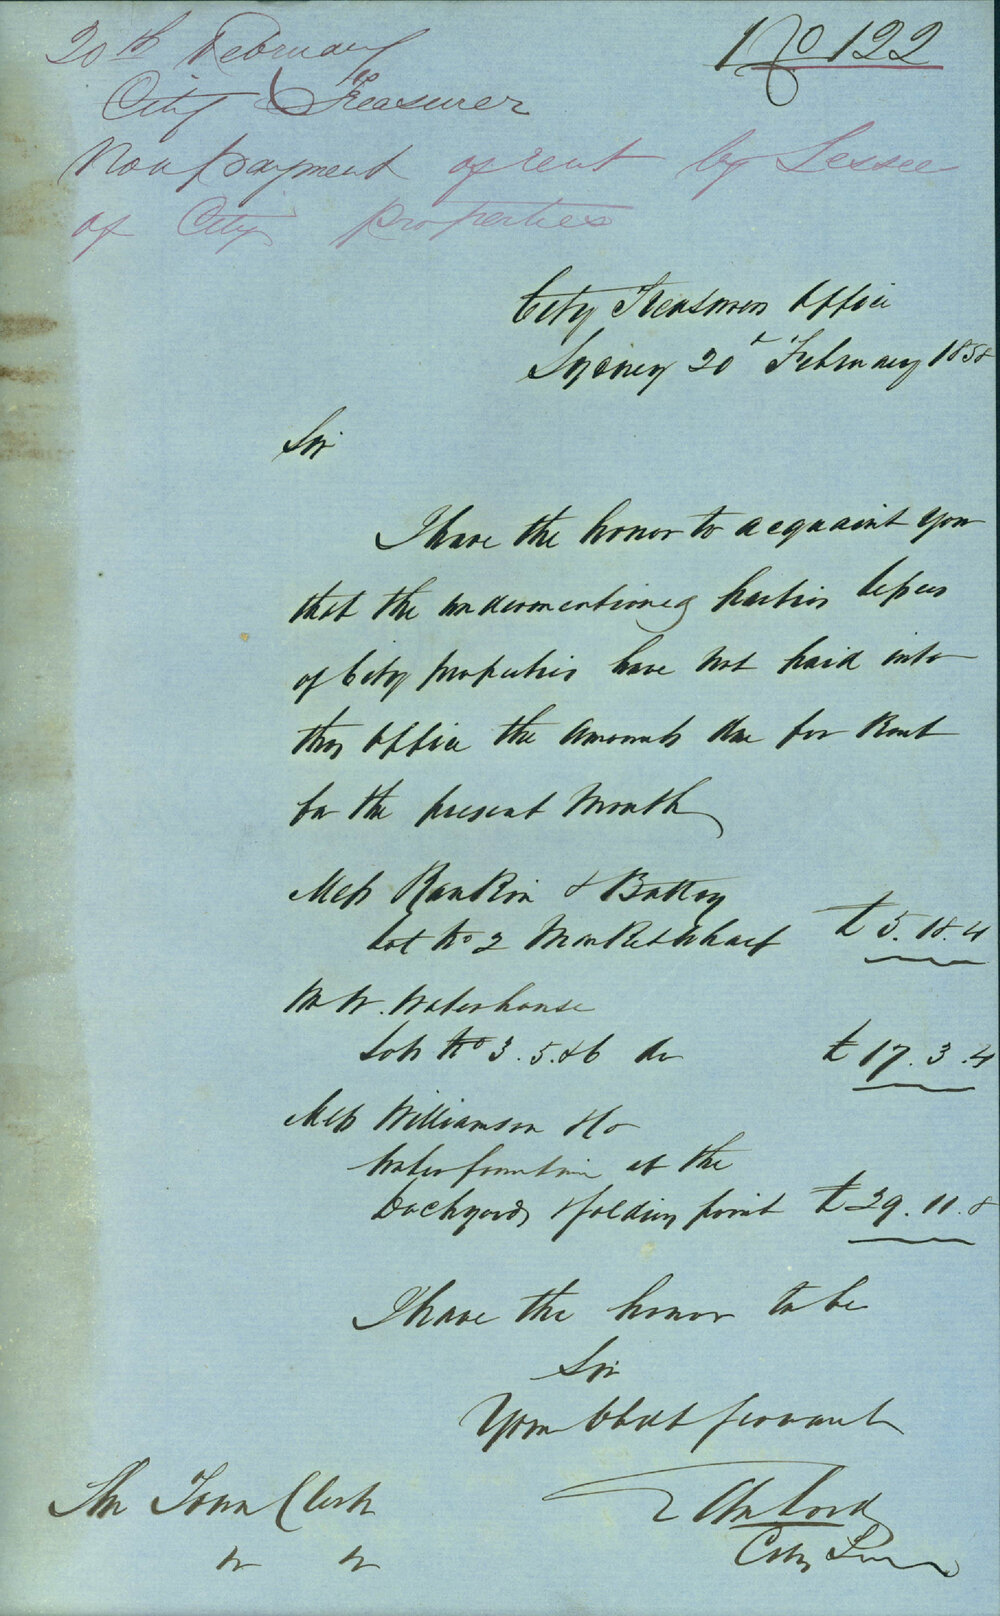 20th February
No 122
City Treasurer
Non payment of rent by Lessee
of City Properties
City Treasurers Office
Sydney 20th February 1858
Sir
I have the honor to acquaint you
that the undermentioned parties lessees
of City properties have not paid into
this Office the amounts due for Rent
for the present Month
Messrs Rankin & Battey
Lot No 2 Market Wharf £5.18.4
Mr W. Waterhouse
Lots No 3.5.&6 do £17.3.4
Messrs Williamson & Co
Water frontage at the
Dockyard & folding point £29.11.8
I have the honor to be
Sir
Your Obedt servant
The Town Clerk
City Treasurer